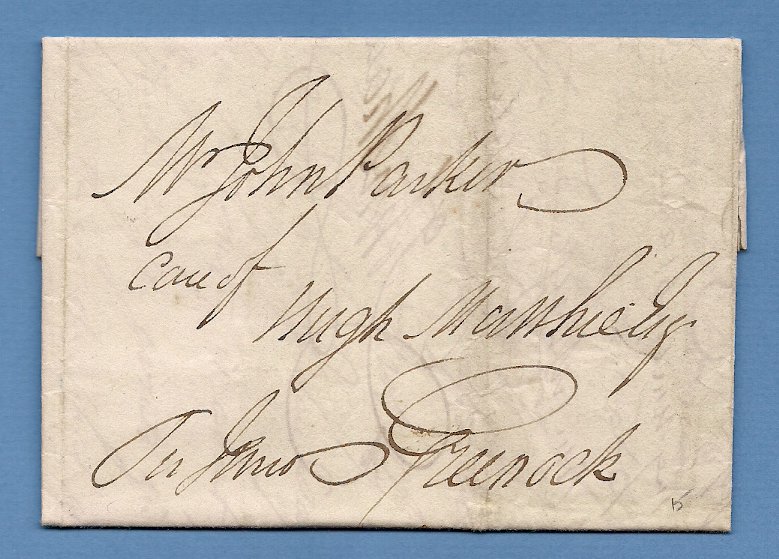 Mr John Parker
Care of
Hugh Matthie Esqr
Per Juno Greenock